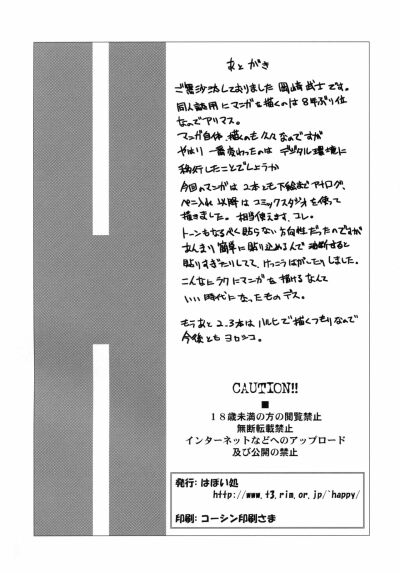 あとがき
ご無沙汰しておりました 岡崎武士です。
同人誌用にマンガを描くのは8年ぶり位
なのでアリマス。
マンガ自体、描くのも久々なのですが
やはり一番変わったのは デジタル環境に
移行したことでしょうか
今回のマンガは 2本とも下絵までアナログ、
ペン入れ以降は コミックスタジオを使って
描きました。相当使えます、コレ。
トーンもなるべく貼らない方向性だったのですが
あんまり簡単に貼り込めるんで 油断すると
貼りすぎたりしてて、けっこうはがしたりしました。
こんなにラクにマンガを描けるなんて
いい時代になったものデス。
もうあと 2、3本は ハルヒで描くつもりなので
今後とも ヨロシコ。
CAUTION!!
■
18歳未満の方の閲覧禁止
無断転載禁止
インターネットなどへのアップロード
及び公開の禁止
発行: はぽい処
http://www.t3.rim.or.jp/~happy/
印刷: コーシン印刷さま